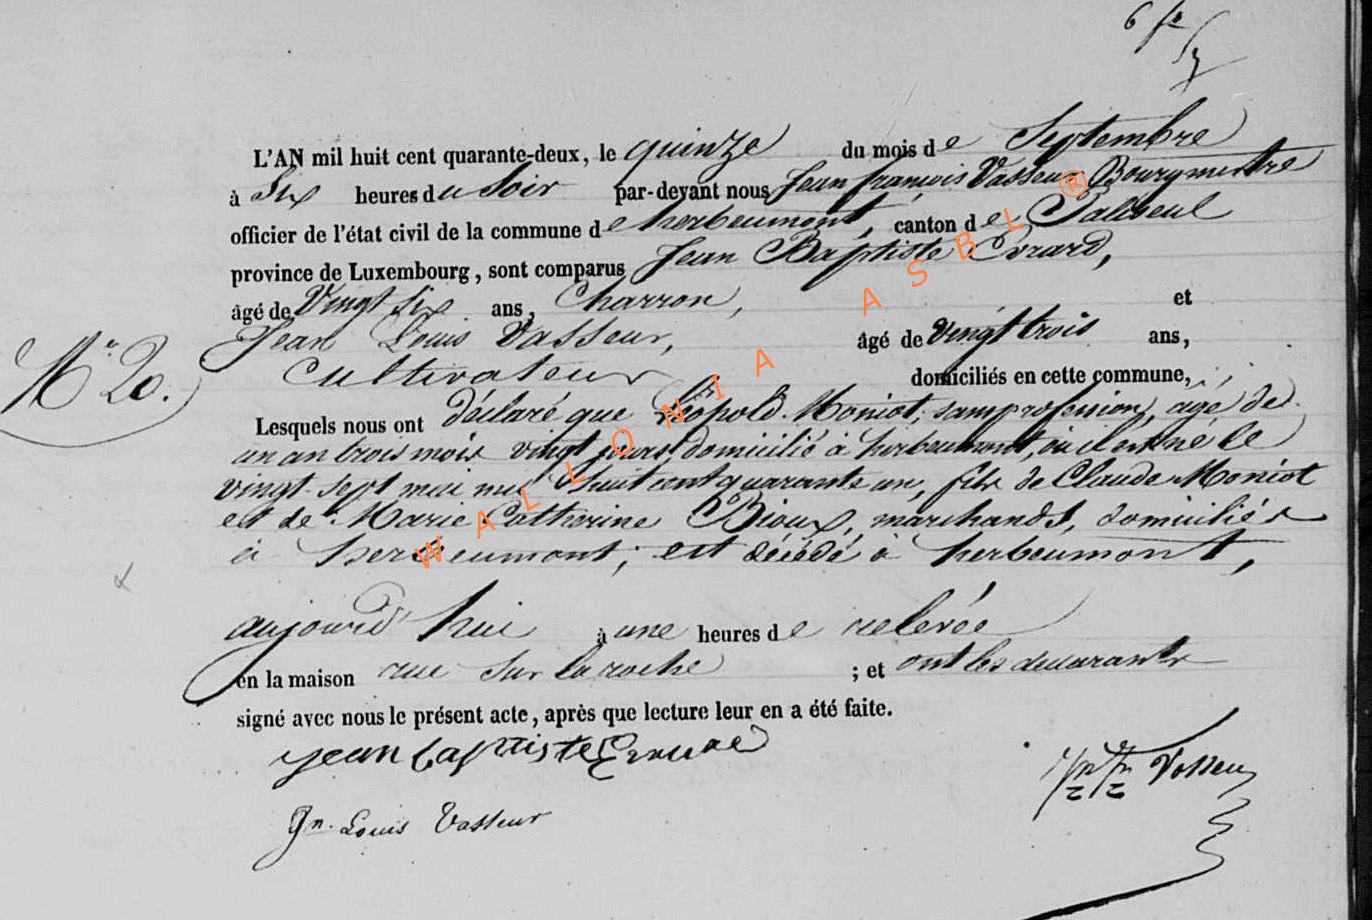 6 fe
L'AN mil huit cent quarante-deux, le quinze du mois de Septembre
à Six heures du soir par-devant nous Jean françois Vasseur Bourgmestre
officier de l'état civil de la commune de herbeumont, canton de Paliseul
province de Luxembourg, sont comparus Jean Baptiste Evrard,
âgé de Vingt six ans, Charron, et
Jean Louis Vasseur, âgé de vingt trois ans,
Cultivateur domiciliés en cette commune,
N° 20.
Lesquels nous ont déclaré que Léopold Moniot, sans profession, agé de
un an trois mois vingt jours domicilié à herbeumont, où il est né le
vingt-sept mai mil huit cent quarante un, fils de Claude Moniot
et de Marie Catherine Bioux, marchands, domiciliés
à herbeumont, est décédé à herbeumont,
aujourd'hui à une heures de relevée
en la maison rue sur la roche ; et ont les déclarants
signé avec nous le présent acte, après que lecture leur en a été faite.
jean baptiste Evrard
Jn. Louis Vasseur
Vasseur
WALLONIA ASBL ®